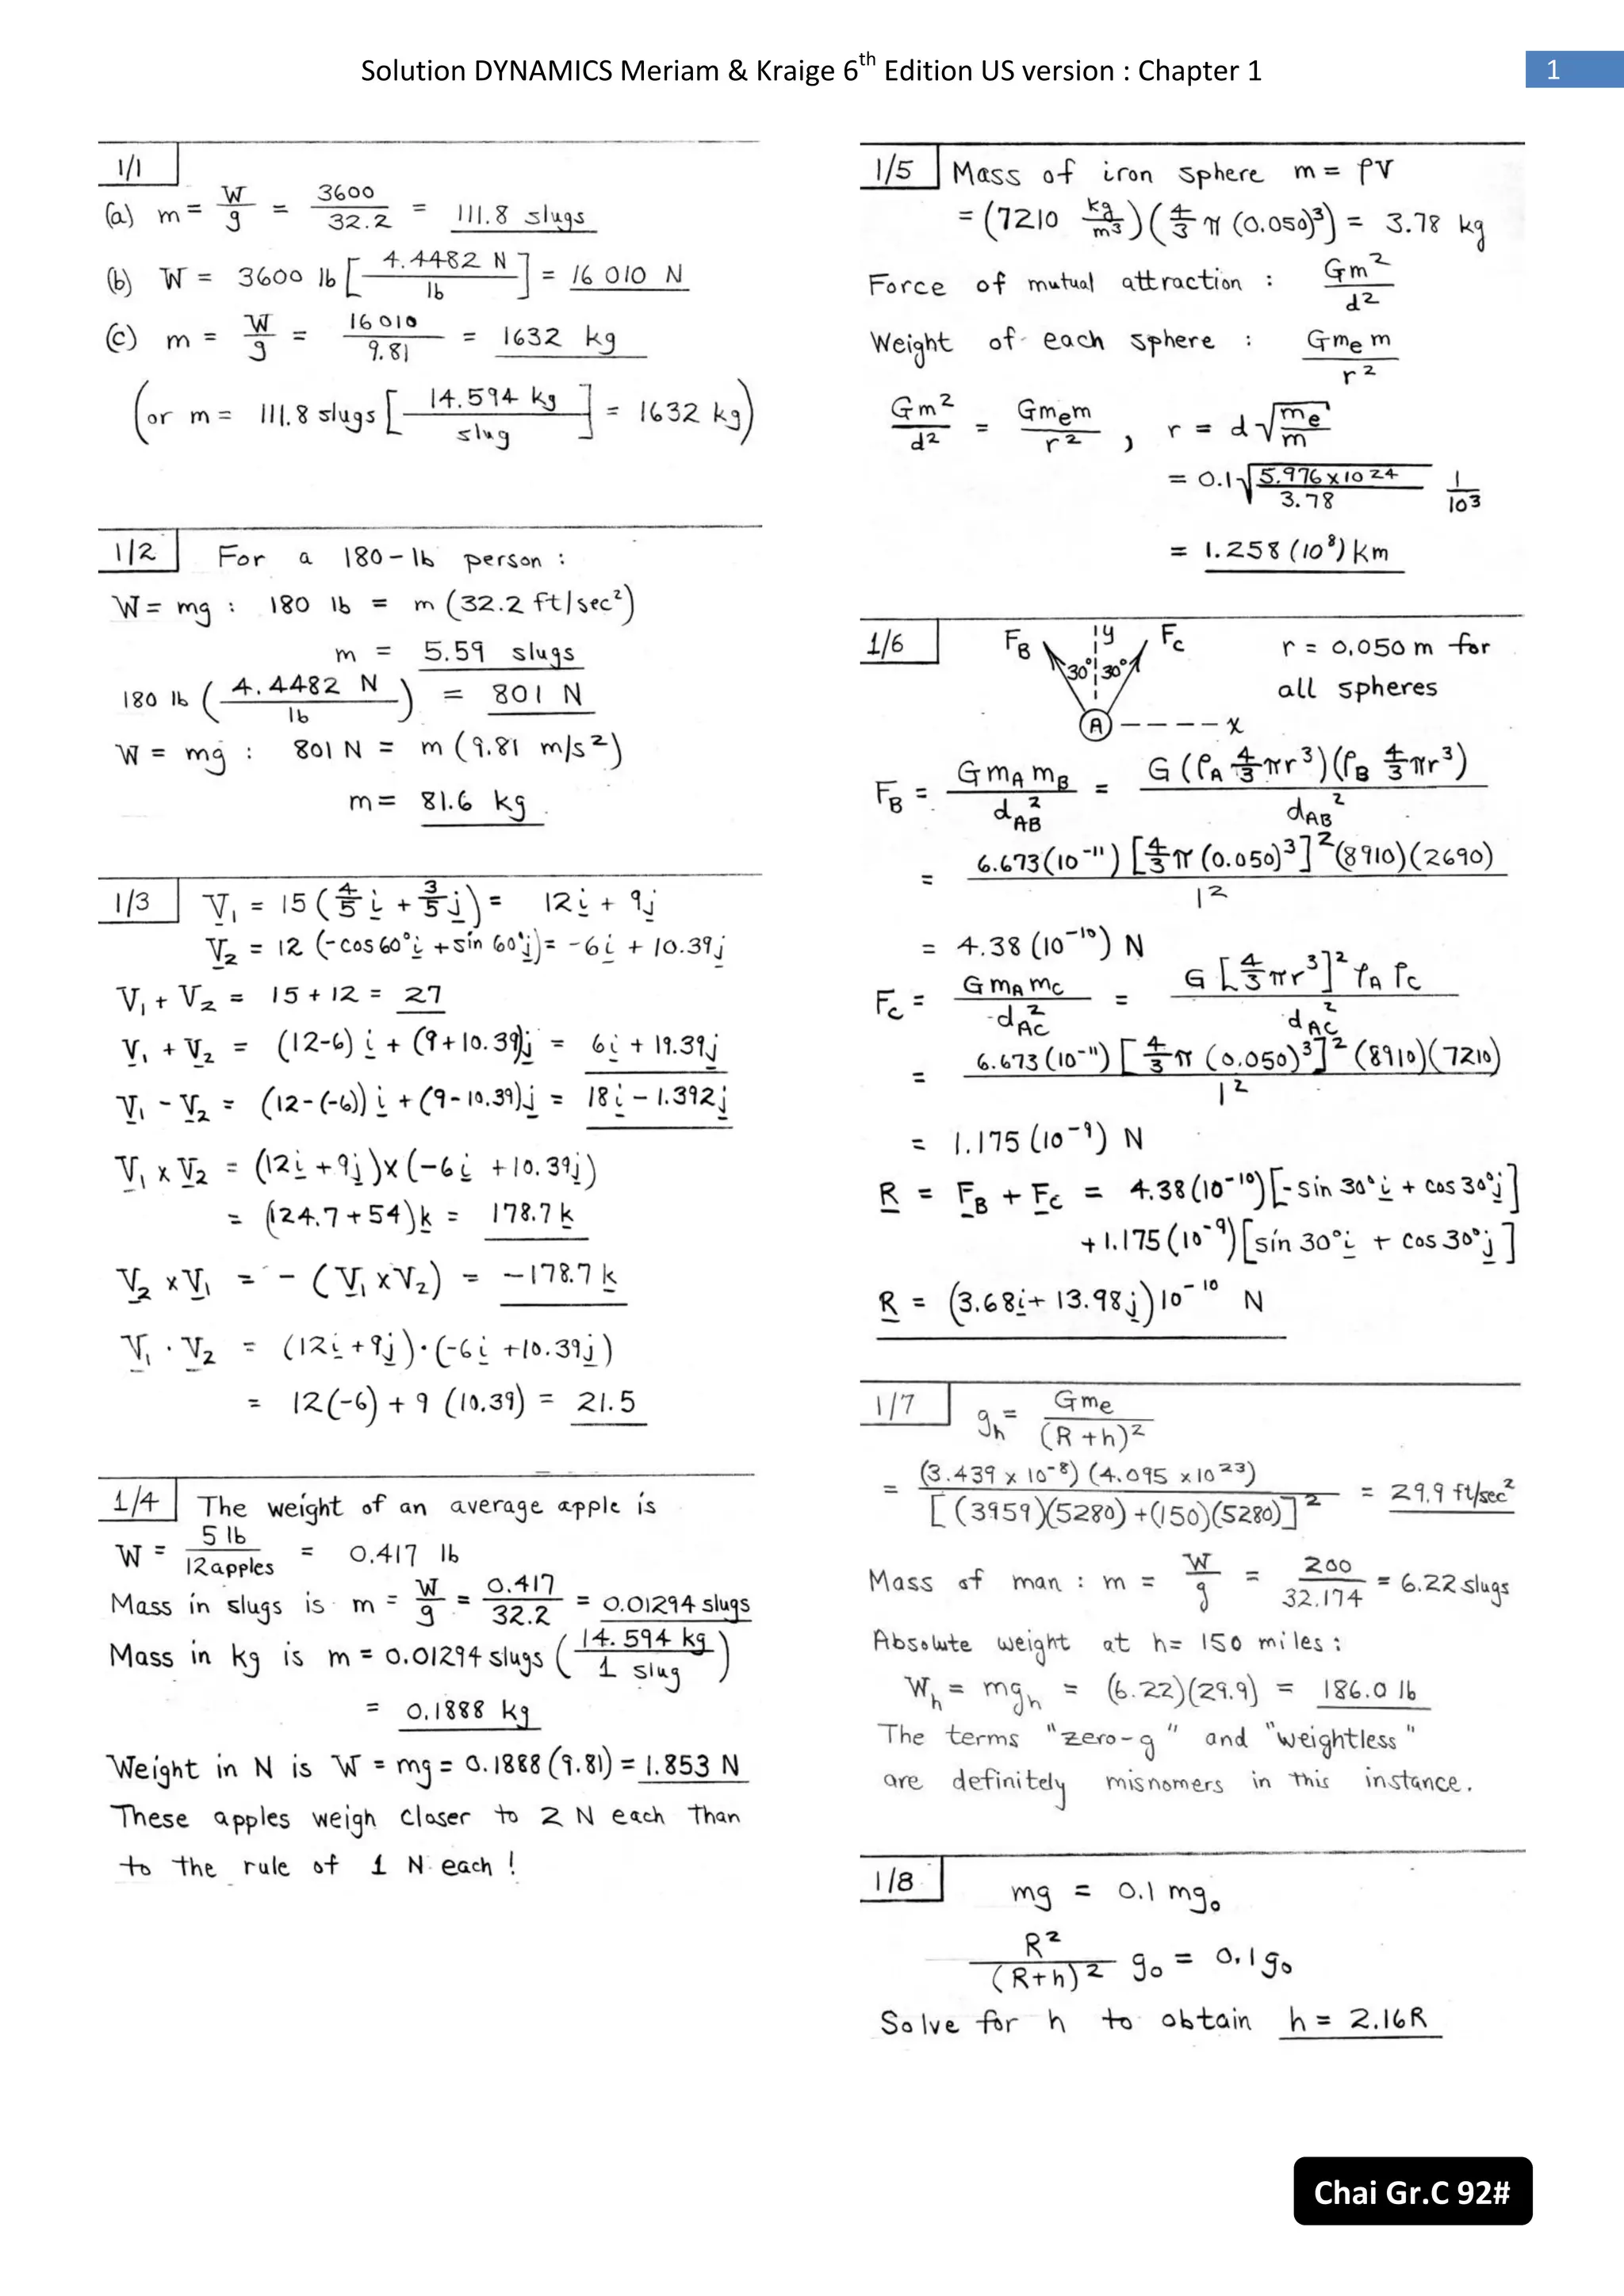 Solution DYNAMICS Meriam & Kraige 6th Edition US version : Chapter 1
1
1/1
(a) m = W/g = 3600/32.2 = 111.8 slugs
(b) W = 3600 lb [4.4482 N/lb] = 16 010 N
(c) m = W/g = 16010/9.81 = 1632 kg
(or m = 111.8 slugs [14.594 kg/slug] = 1632 kg)
1/2 For a 180-lb person :
W = mg : 180 lb = m (32.2 ft/sec²)
m = 5.59 slugs
180 lb (4.4482 N/lb) = 801 N
W = mg : 801 N = m (9.81 m/s²)
m = 81.6 kg
1/3 V₁ = 15 (4/5 i + 3/5 j) = 12i + 9j
V₂ = 12 (-cos 60° i + sin 60° j) = -6i + 10.39j
V₁ + V₂ = 15 + 12 = 27
V₁ + V₂ = (12-6) i + (9+10.39)j = 6i + 19.39j
V₁ - V₂ = (12-(-6)) i + (9-10.39)j = 18i - 1.392j
V₁ x V₂ = (12i + 9j) x (-6i + 10.39j)
= (124.7 + 54)k = 178.7k
V₂ x V₁ = - (V₁ x V₂) = -178.7k
V₁ · V₂ = (12i + 9j) · (-6i + 10.39j)
= 12(-6) + 9 (10.39) = 21.5
1/4 The weight of an average apple is
W = 5 lb/12 apples = 0.417 lb
Mass in slugs is m = W/g = 0.417/32.2 = 0.01294 slugs
Mass in kg is m = 0.01294 slugs (14.594 kg/1 slug)
= 0.1888 kg
Weight in N is W = mg = 0.1888 (9.81) = 1.853 N
These apples weigh closer to 2 N each than
to the rule of 1 N each !
1/5 Mass of iron sphere m = ρV
= (7210 kg/m³) (4/3 π (0.050)³) = 3.78 kg
Force of mutual attraction : Gm²/d²
Weight of each sphere : Gmₑm/r²
Gm²/d² = Gmₑm/r² , r = d √(mₑ/m)
= 0.1 √(5.976 x 10²⁴/3.78) 1/10³
= 1.258 (10⁸) km
1/6 F_B y F_C r = 0.050 m for
30° 30° all spheres
A x
F_B = G m_A m_B/d_AB² = G (ρ_A 4/3 πr³)(ρ_B 4/3 πr³)/d_AB²
= 6.673 (10⁻¹¹) [4/3 π (0.050)³]² (8910)(2690)/1²
= 4.38 (10⁻¹⁰) N
F_C = G m_A m_C/d_AC² = G [4/3 πr³]² ρ_A ρ_C/d_AC²
= 6.673 (10⁻¹¹) [4/3 π (0.050)³]² (8910)(7210)/1²
= 1.175 (10⁻⁹) N
R = F_B + F_C = 4.38 (10⁻¹⁰) [-sin 30° i + cos 30° j]
+ 1.175 (10⁻⁹) [sin 30° i + cos 30° j]
R = (3.68i + 13.98j) 10⁻¹⁰ N
1/7 g_h = Gmₑ/(R + h)²
= (3.439 x 10⁻⁸) (4.095 x 10²³)/[(3959)(5280) + (150)(5280)]² = 29.9 ft/sec²
Mass of man : m = W/g = 200/32.174 = 6.22 slugs
Absolute weight at h = 150 miles :
W_h = mg_h = (6.22)(29.9) = 186.0 lb
The terms "zero-g" and "weightless"
are definitely misnomers in this instance.
1/8 mg = 0.1 mg₀
R²/(R+h)² g₀ = 0.1g₀
Solve for h to obtain h = 2.16R
Chai Gr.C 92#